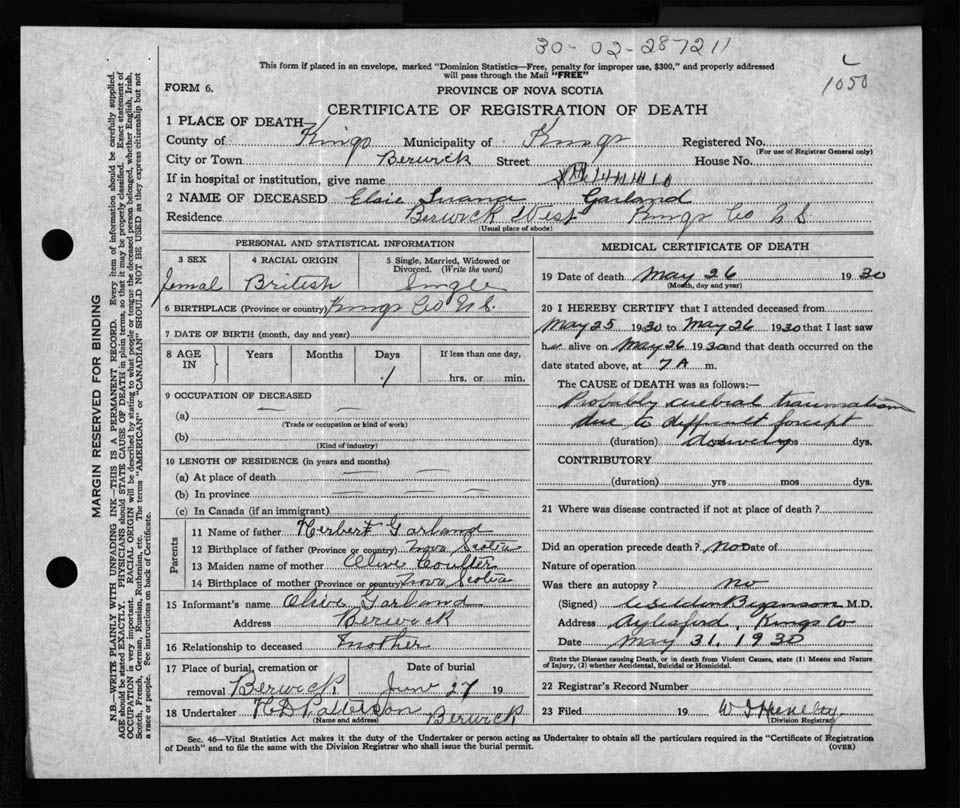 30-02-287211
1050
This form if placed in an envelope, marked "Dominion Statistics—Free, penalty for improper use, $300," and properly addressed
will pass through the Mail "FREE"
FORM 6.
PROVINCE OF NOVA SCOTIA
CERTIFICATE OF REGISTRATION OF DEATH
1 PLACE OF DEATH—
County of Kings Municipality of Kings Registered No.
(For use of Registrar General only)
City or Town Berwick Street House No.
If in hospital or institution, give name
2 NAME OF DECEASED Elsie Garland
Residence Berwick West Kings Co N S.
(Usual place of abode)
PERSONAL AND STATISTICAL INFORMATION
3 SEX 4 RACIAL ORIGIN 5 Single, Married, Widowed or Divorced. (Write the word)
Femal British Single
6 BIRTHPLACE (Province or country) Kings Co N S.
7 DATE OF BIRTH (month, day and year)
8 AGE IN Years Months Days If less than one day,
1 hrs. or min.
9 OCCUPATION OF DECEASED
(a) —
(Trade or occupation or kind of work)
(b)
(Kind of industry)
10 LENGTH OF RESIDENCE (in years and months)
(a) At place of death — —
(b) In province — —
(c) In Canada (if an immigrant)
Parents
11 Name of father Herbert Garland
12 Birthplace of father (Province or country) Nova Scotia
13 Maiden name of mother Olive Coulter
14 Birthplace of mother (Province or country) Nova Scotia
15 Informant's name Olive Garland
Address Berwick
16 Relationship to deceased Mother
17 Place of burial, cremation or Date of burial
removal Berwick, June 27 19
18 Undertaker H D Patterson Berwick
(Name and address)
MEDICAL CERTIFICATE OF DEATH
19 Date of death May 26 1930
(Month, day and year)
20 I HEREBY CERTIFY that I attended deceased from
May 25 1930 to May 26 1930 that I last saw
her alive on May 26 1930 and that death occurred on the
date stated above, at 7 A m.
The CAUSE of DEATH was as follows:—
Probably cerebral traumatism
due to difficult forcept
(duration) yrs mos dys.
CONTRIBUTORY
(duration) yrs mos dys.
21 Where was disease contracted if not at place of death?
Did an operation precede death? no Date of
Nature of operation
Was there an autopsy? no
(Signed) M.D.
Address Aylesford, Kings Co
Date May 31, 1930
State the Disease causing Death, or in death from Violent Causes, state (1) Means and Nature
of Injury, (2) whether Accidental, Suicidal or Homicidal.
22 Registrar's Record Number
23 Filed 19
(Division Registrar)
Sec. 46—Vital Statistics Act makes it the duty of the Undertaker or person acting as Undertaker to obtain all the particulars required in the "Certificate of Registration
of Death" and to file the same with the Division Registrar who shall issue the burial permit. (OVER)
MARGIN RESERVED FOR BINDING
N.B.—WRITE PLAINLY WITH UNFADING INK—THIS IS A PERMANENT RECORD. Every item of information should be carefully supplied.
AGE should be stated EXACTLY. PHYSICIANS should STATE CAUSE OF DEATH in plain terms, so that it may be properly classified. Exact statement of
OCCUPATION is very important. RACIAL ORIGIN will be described by stating to what people or tongue the deceased person belonged, whether English, Irish,
Scotch, French, German, Russian, Ruthenian, etc. The terms "AMERICAN" or "CANADIAN" SHOULD NOT BE USED as they express citizenship but not
a race or people. See instructions on back of Certificate.